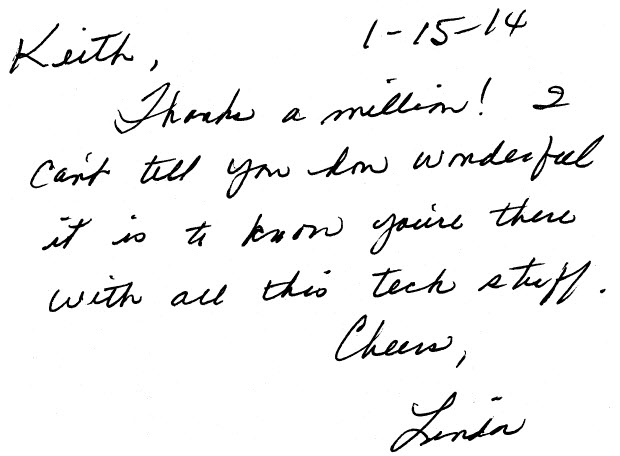 1-15-14
Keith,
Thanks a million! I
can't tell you how wonderful
it is to know you're there
with all this tech stuff.
Cheers,
Linda